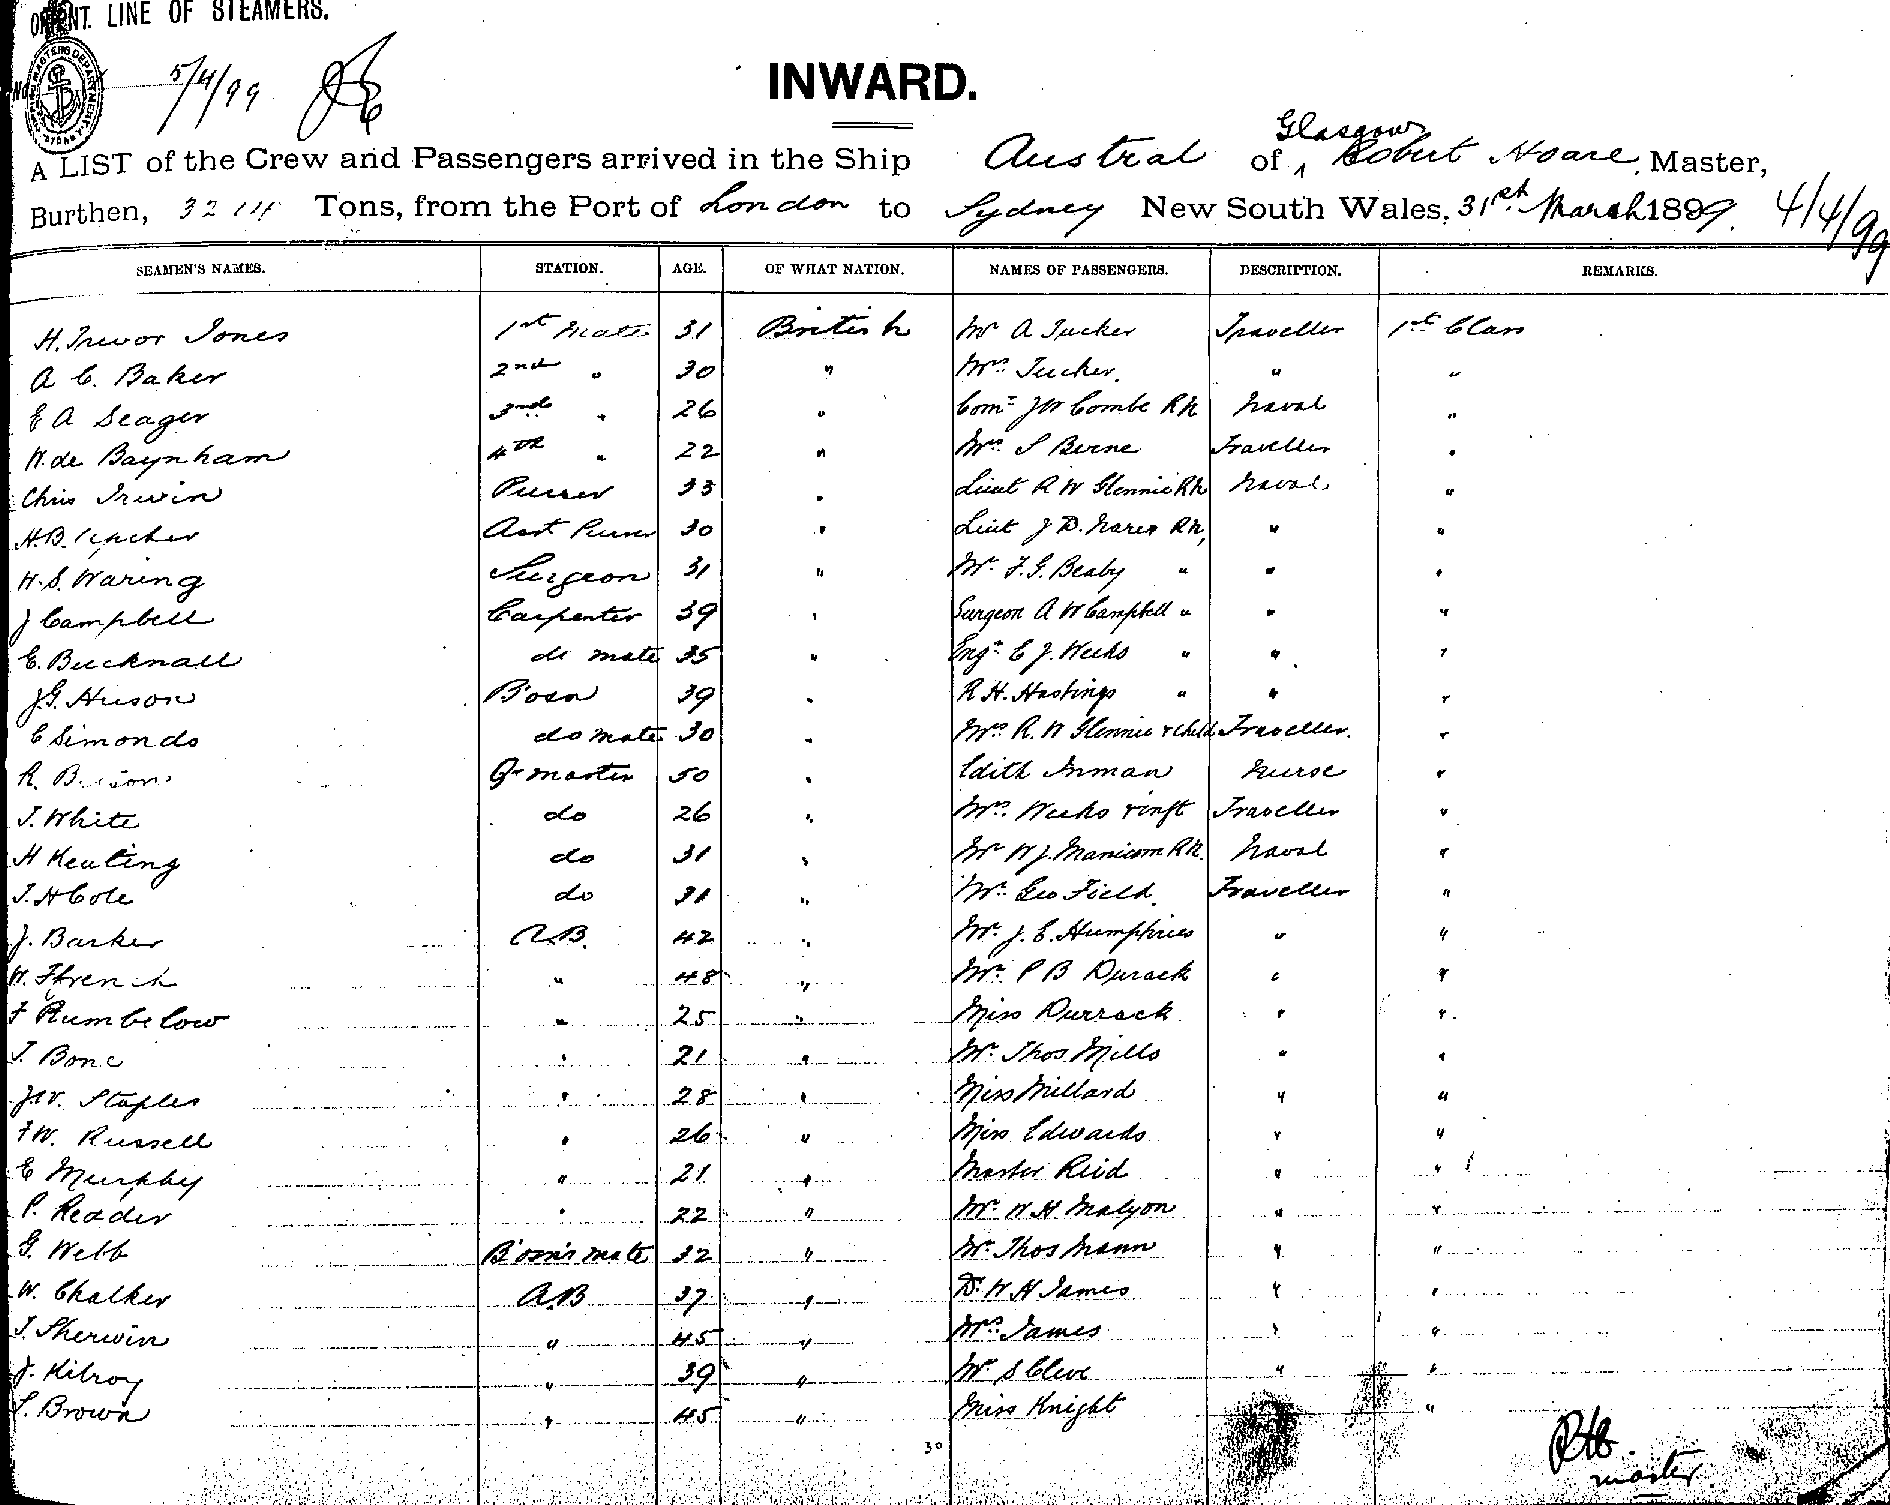 ORIENT. LINE OF STEAMERS.
5/4/99
INWARD.
Glasgow
A LIST of the Crew and Passengers arrived in the Ship Austral of ^ Robert Hoare, Master,
Burthen, 3214 Tons, from the Port of London to Sydney New South Wales, 31st March 1899. 4/4/99
SEAMEN'S NAMES. STATION. AGE. OF WHAT NATION. NAMES OF PASSENGERS. DESCRIPTION. REMARKS.
H. Trevor Jones 1st Mate 31 British Mr A Tucker Traveller 1st Class
A C. Baker 2nd " 30 " Mrs Tucker. " "
E A Seager 3rd " 26 " Comr J W Combe RN Naval "
W. de Baynham 4th " 22 " Mrs S Berne Traveller "
Chris Irwin Purser 33 " Lieut R W Glennie RN Naval "
H.B. Asst Purser 30 " Lieut J D. Nares RN, " "
H.S. Waring Surgeon 31 " Mr F.G. Beaby " " "
J Campbell Carpenter 39 " Surgeon A W Campbell " " "
E. Bucknall do mate 35 " Engr E J. Weeks " " "
J.G. Huson Bosn 39 " R H. Hastings " " "
C Simonds do mate 30 " Mrs R. W Glennie & child Traveller. "
R. Qr master 50 " Edith Inman Nurse "
J. White do 26 " Mrs Weeks & inft Traveller "
H Keating do 31 " Mr W J. Manicom RN. Naval "
J. H Cole do 31 " Mr Geo Field. Traveller "
J. Barker A.B. 42 " Mr J. E. Humphries " "
W. Ffrench " 48 " Mr P B Durack " "
F Rumbelow " 25 " Miss Durrack " "
J. Bone " 21 " Mr Thos Mills " "
J.W. Staples " 28 " Miss Millard " "
F W. Russell " 26 " Miss Edwards " "
E Murphy " 21 " Master Reid " "
P. Redder " 22 " Mr W H Malyon " "
G. Webb Bosn's mate 32 " Mr Thos Mann " "
W. Chalker A.B 37 " Dr W H James " "
J. Sherwin " 45 " Mrs James " "
J. Kilroy " 39 " Mr S Clive " "
S. Brown " 45 " Miss Knight "
30
RH.
master